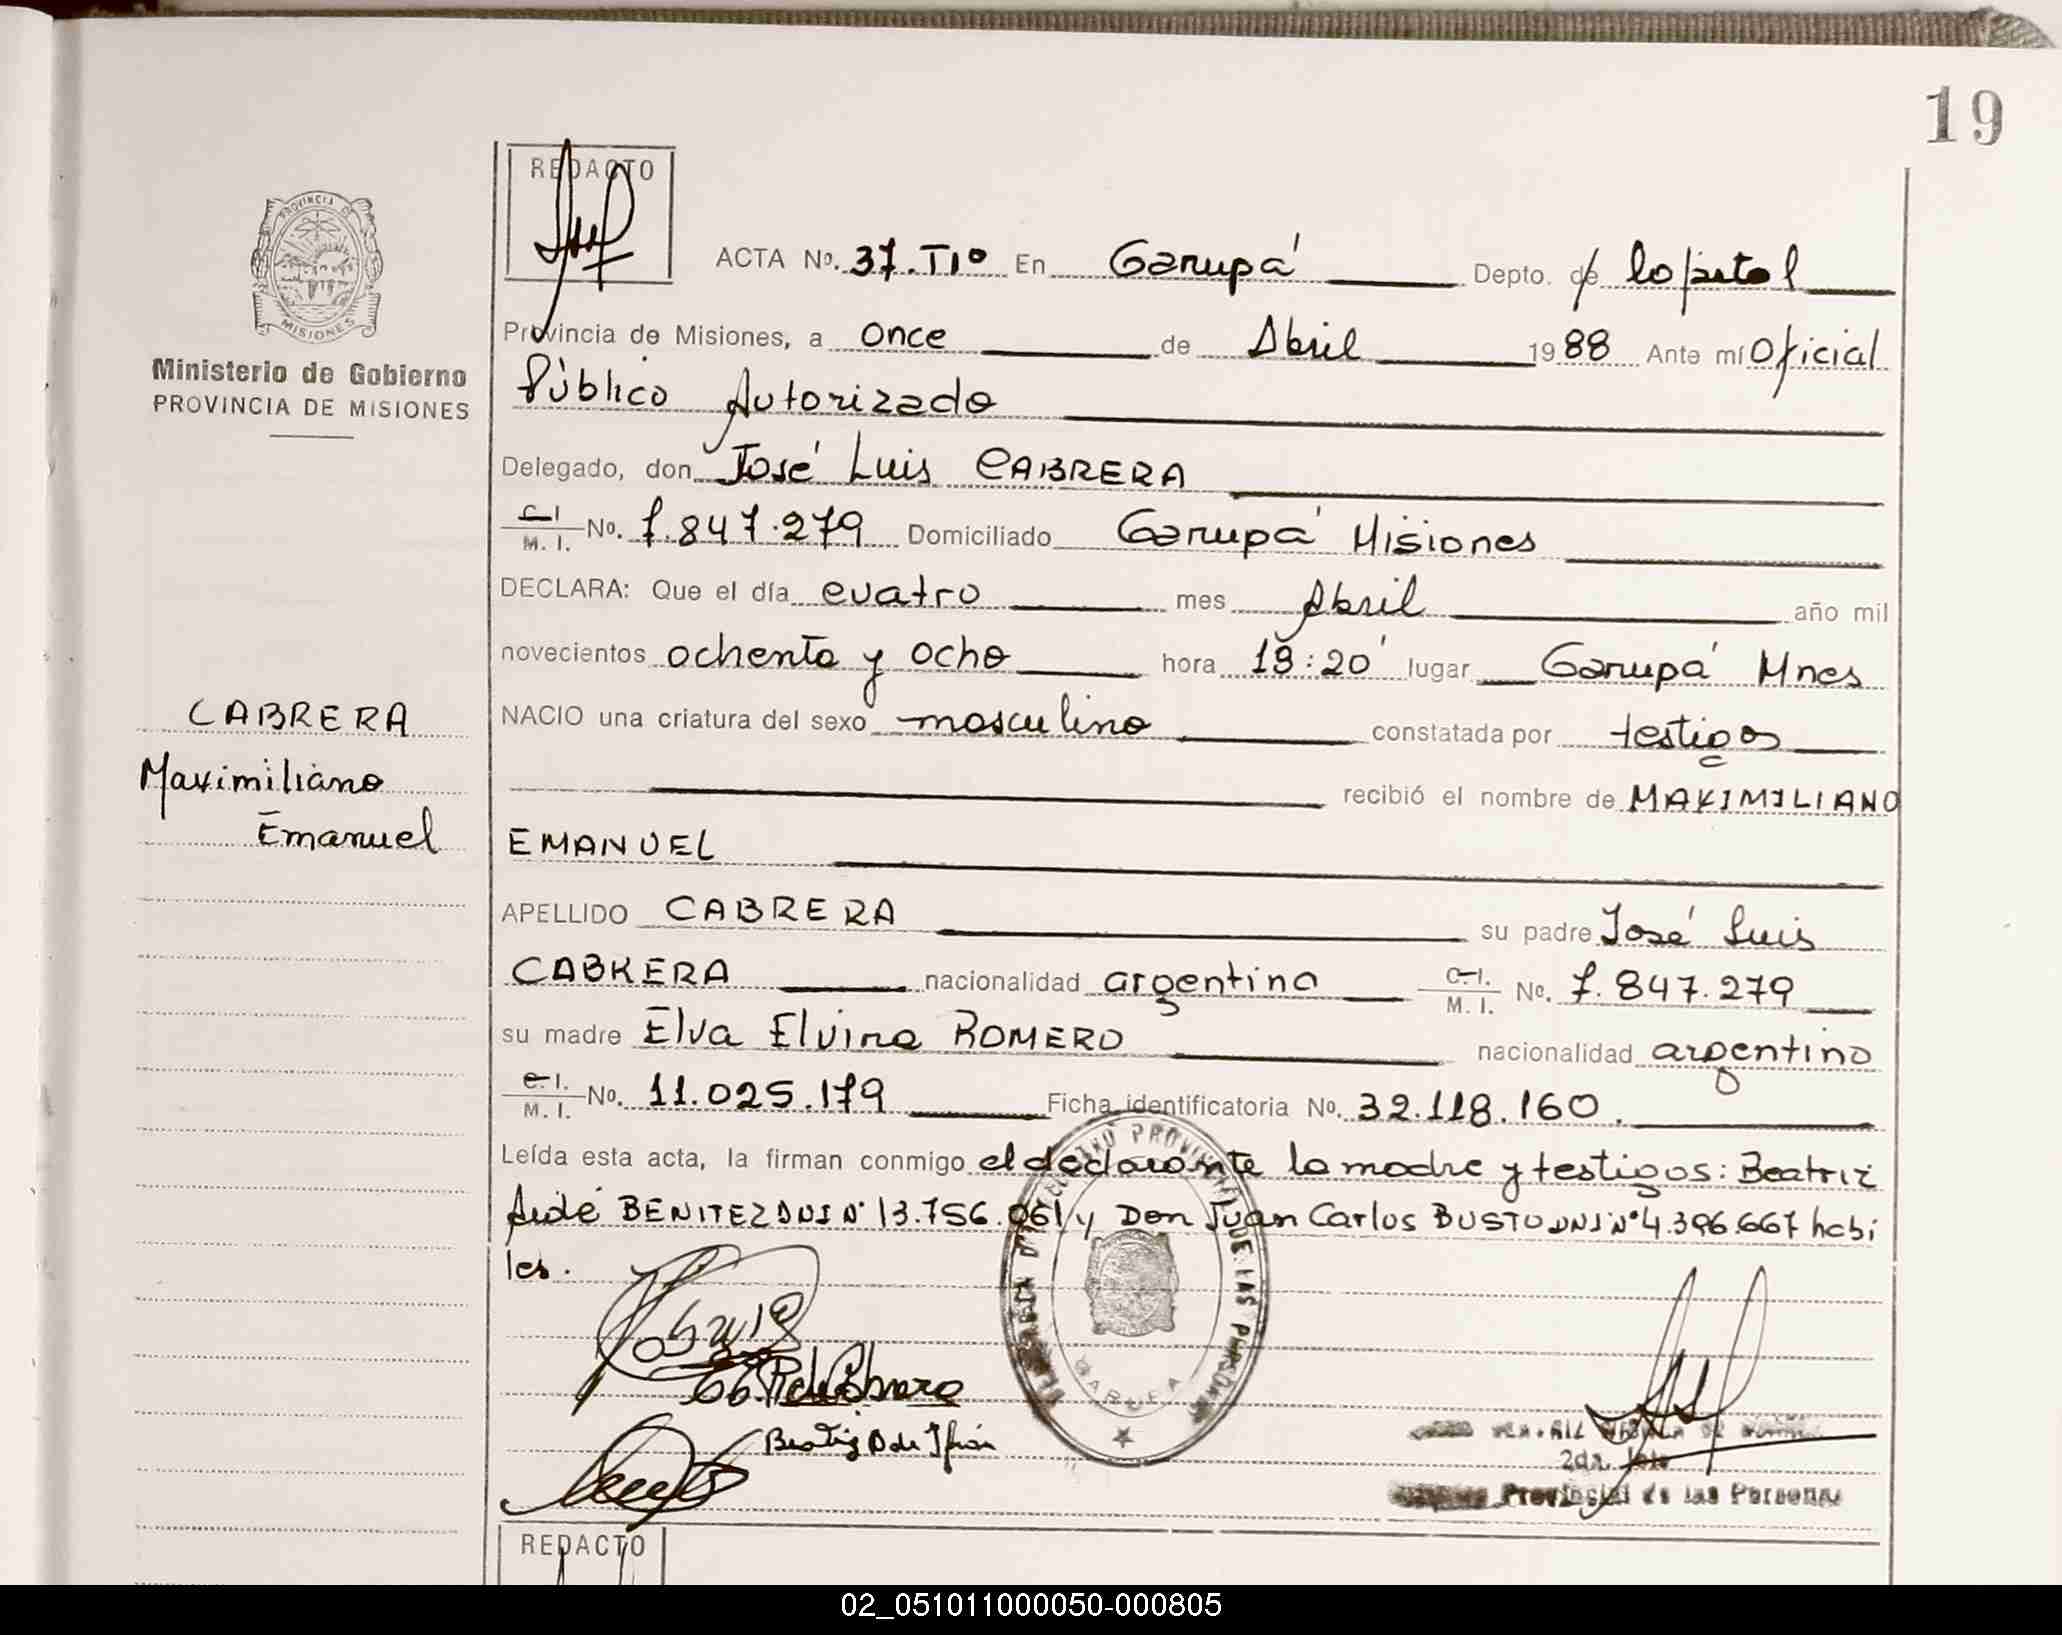 19
REDACTO
PROVINCIA DE
MISIONES
Ministerio de Gobierno
PROVINCIA DE MISIONES
ACTA Nº. 37.TIº En Garupá Depto. de la Capital
Provincia de Misiones, a once de Abril 1988 Ante mí Oficial
Público Autorizado
Delegado, don José Luis CABRERA
C.I. / M. I. Nº. 7.847.279 Domiciliado Garupá Misiones
DECLARA: Que el día cuatro mes Abril año mil
novecientos ochenta y ocho hora 19:20' lugar Garupá Mnes
NACIO una criatura del sexo masculino constatada por testigos
recibió el nombre de MAXIMILIANO
EMANUEL
CABRERA
Maximiliano
Emanuel
APELLIDO CABRERA su padre José Luis
CABRERA nacionalidad argentina C.I. / M. I. Nº. 7.847.279
su madre Elva Elvira ROMERO nacionalidad argentina
C.I. / M. I. Nº. 11.025.179 Ficha identificatoria Nº. 32.118.160.
Leída esta acta, la firman conmigo el declarante la madre y testigos: Beatriz
Aidé BENITEZ DNI Nº 13.756.061 y Don Juan Carlos BUSTO DNI Nº 4.396.667 habi
les.
PROVINCIAL DE LAS PERSONAS
GARUPA
R de Cabrera
Beatriz B de
2da. Jefe
Provincial de las Personas
REDACTO
02_051011000050-000805